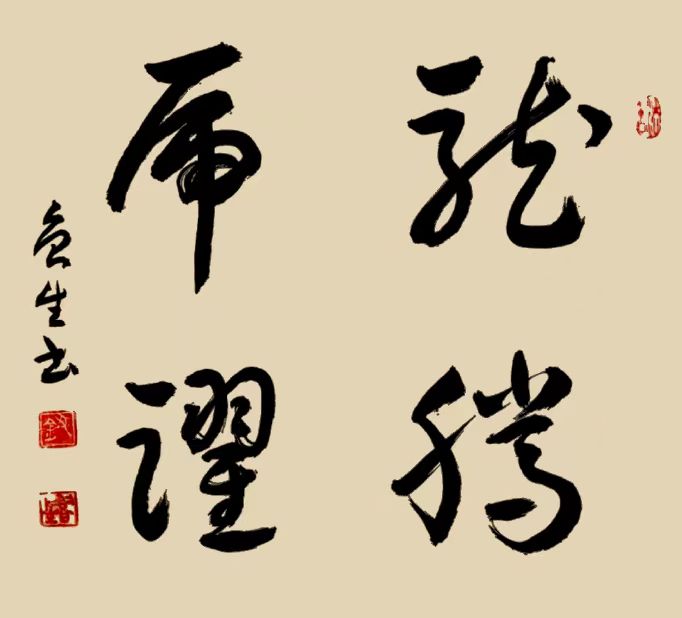 龍騰
虎躍
生书